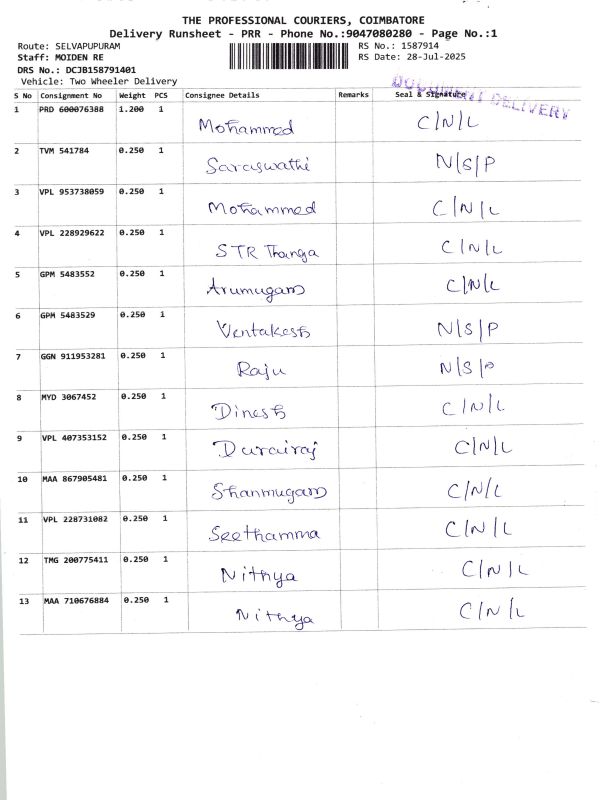 THE PROFESSIONAL COURIERS, COIMBATORE
Delivery Runsheet - PRR - Phone No.:9047080280 - Page No.:1
Route: SELVAPUPURAM
RS No.: 1587914
Staff: MOIDEN RE
RS Date: 28-Jul-2025
DRS No.: DCJB158791401
Vehicle: Two Wheeler Delivery
DOCUMENT DELIVERY
S No Consignment No Weight PCS Consignee Details Remarks Seal & Signature
1 PRD 600076388 1.200 1 Mohammed C/N/L
2 TVM 541784 0.250 1 Saraswathi N/S/P
3 VPL 953738059 0.250 1 Mohammed C/N/L
4 VPL 228929622 0.250 1 STR Thanga C/N/L
5 GPM 5483552 0.250 1 Arumugam C/N/L
6 GPM 5483529 0.250 1 Ventakesh N/S/P
7 GGN 911953281 0.250 1 Raju N/S/P
8 MYD 3067452 0.250 1 Dinesh C/N/L
9 VPL 407353152 0.250 1 Durairaj C/N/L
10 MAA 867905481 0.250 1 Shanmugam C/N/L
11 VPL 228731082 0.250 1 Seethamma C/N/L
12 TMG 200775411 0.250 1 Nithya C/N/L
13 MAA 710676884 0.250 1 Nithya C/N/L